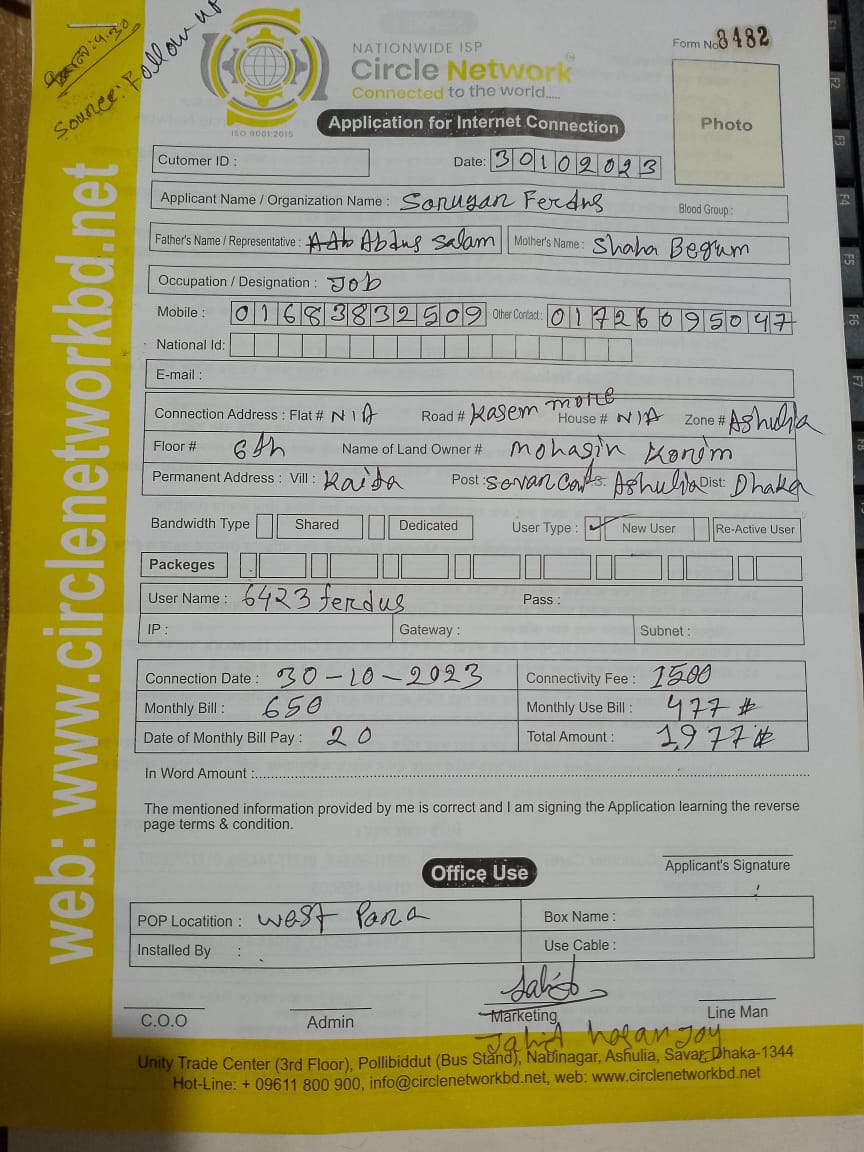 Source: Follow up
NATIONWIDE ISP
Circle Network
Connected to the world.....
ISO 9001:2015
Form No 8482
Photo
Application for Internet Connection
Cutomer ID :
Date: 30102023
Applicant Name / Organization Name : Soruyan Ferdus Blood Group :
Father's Name / Representative : Abdus Salam Mother's Name : Shaha Begum
Occupation / Designation : Job
Mobile : 01683832509 Other Contact : 01726095047
National Id:
E-mail :
Connection Address : Flat # N/A Road # Kasem more House # N/A Zone # Ashulia
Floor # 6th Name of Land Owner # Mohasin Korim
Permanent Address : Vill : Kaida Post : Savar Cant P.S: Ashulia Dist: Dhaka
Bandwidth Type Shared Dedicated User Type : ✓ New User Re-Active User
Packeges
User Name : 6423ferdus Pass :
IP : Gateway : Subnet :
Connection Date : 30-10-2023 Connectivity Fee : 1500
Monthly Bill : 650 Monthly Use Bill : 477 #
Date of Monthly Bill Pay : 20 Total Amount : 1977 #
In Word Amount :
The mentioned information provided by me is correct and I am signing the Application learning the reverse
page terms & condition.
Applicant's Signature
Office Use
POP Locatition : West Para Box Name :
Installed By : Use Cable :
C.O.O Admin Marketing Line Man
Jahid hasan Joy
Unity Trade Center (3rd Floor), Pollibiddut (Bus Stand), Nabinagar, Ashulia, Savar, Dhaka-1344
Hot-Line: + 09611 800 900, info@circlenetworkbd.net, web: www.circlenetworkbd.net
web: www.circlenetworkbd.net